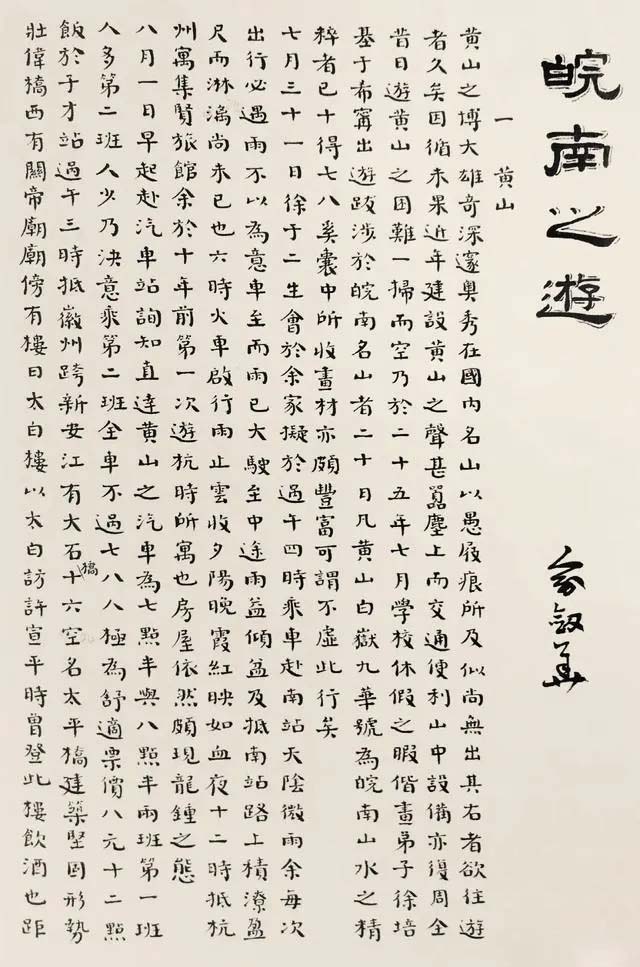 皖南之遊
俞劍華
一 黃山
黃山之博大雄奇深邃奧秀在國內名山以愚屐痕所及似尚無出其右者欲往遊
者久矣因循未果近年建設黃山之聲甚囂塵上而交通便利山中設備亦復周全
昔日遊黃山之困難一掃而空乃於二十五年七月學校休假之暇偕畫弟子徐培
基于希寗出遊跋涉於皖南名山者二十日凡黃山白嶽九華號為皖南山水之精
粹者已十得七八奚囊中所收畫材亦頗豐富可謂不虛此行矣
七月三十一日徐于二生會於余家擬於過午四時乘車赴南站天陰微雨余每次
出行必遇雨不以為意車至而雨已大駛至中途雨益傾盆及抵南站路上積潦盈
尺而淋漓尚未已也六時火車啟行雨止雲收夕陽晚霞紅映如血夜十二時抵杭
州寓集賢旅館余於十年前第一次遊杭時所寓也房屋依然頗現龍鍾之態
八月一日早起赴汽車站詢知直達黃山之汽車為七點半與八點半兩班第一班
人多第二班人少乃決意乘第二班全車不過七八人極為舒適票價八元十二點
飯於于才站過午三時抵徽州跨新安江有大石橋十六空名太平橋建築堅固形勢
壯偉橋西有關帝廟廟傍有樓曰太白樓以太白訪許宣平時曾登此樓飲酒也距